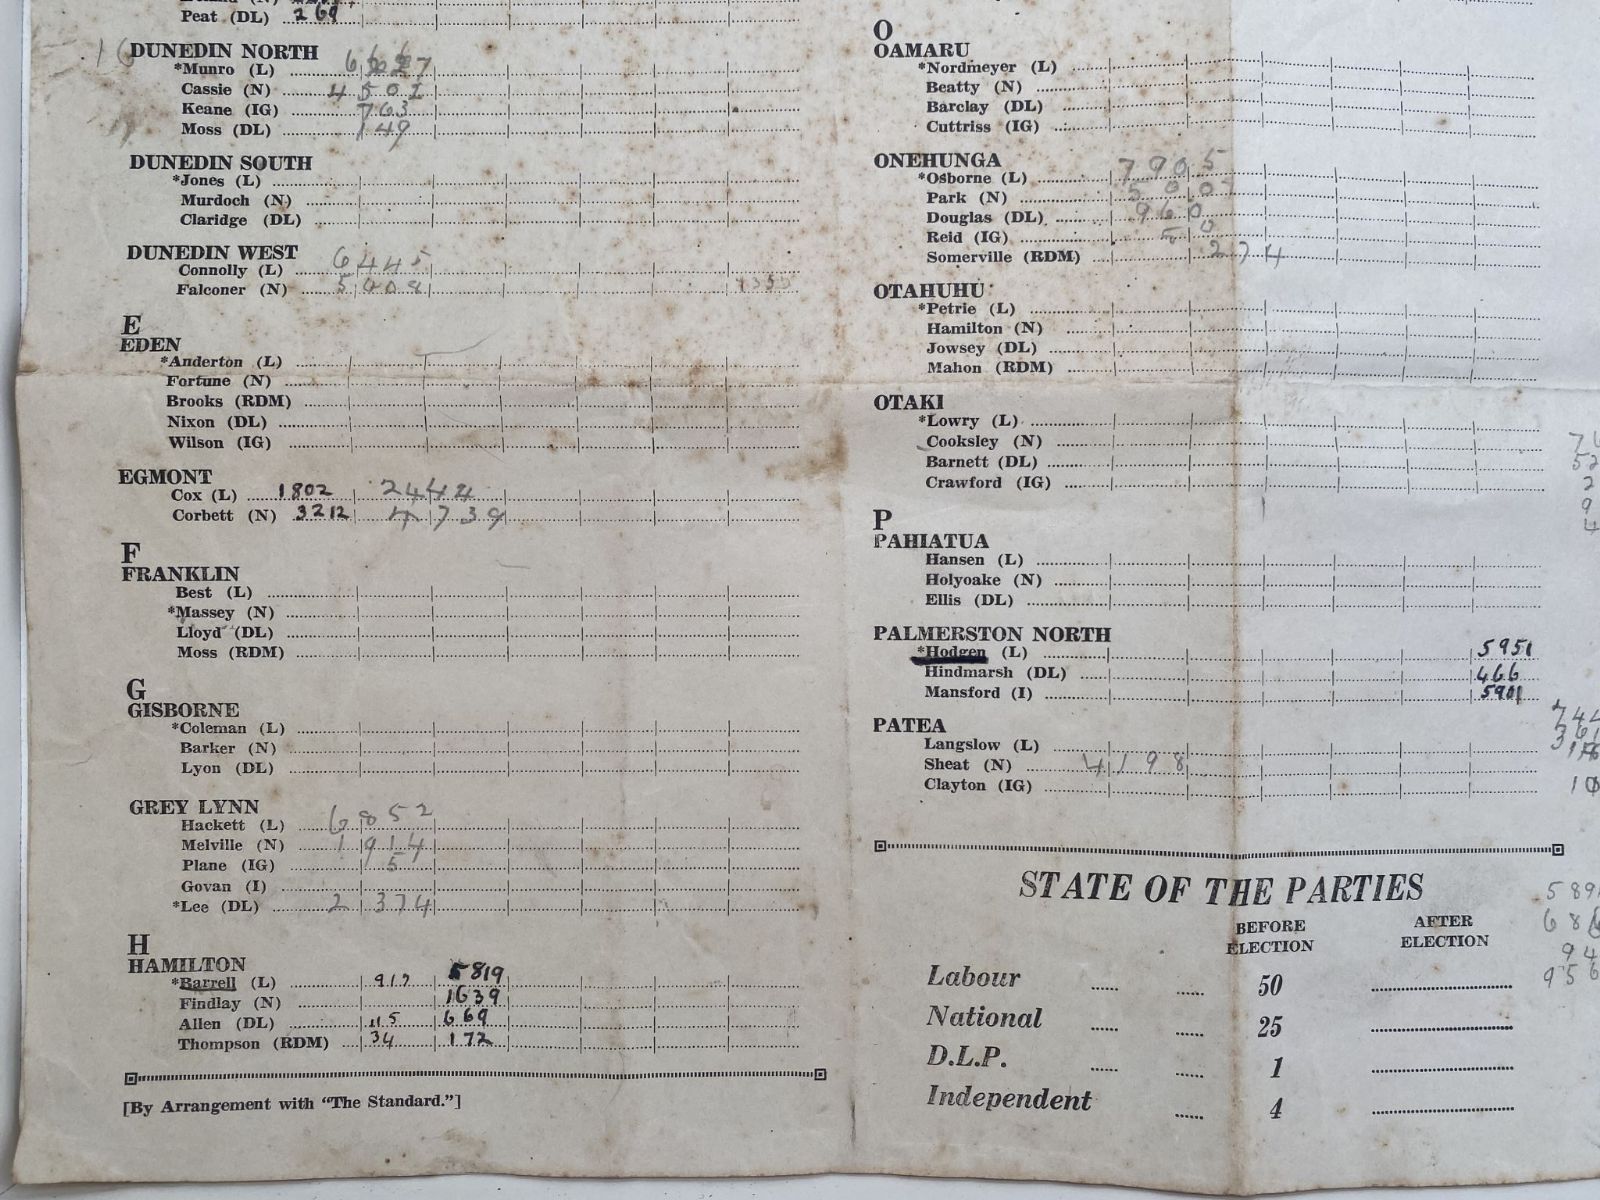 Peat (DL) 269
DUNEDIN NORTH
*Munro (L)
Cassie (N) 4501
Keane (IG) 763
Moss (DL) 149
DUNEDIN SOUTH
*Jones (L)
Murdoch (N)
Claridge (DL)
DUNEDIN WEST
Connolly (L) 6445
Falconer (N)
E
EDEN
*Anderton (L)
Fortune (N)
Brooks (RDM)
Nixon (DL)
Wilson (IG)
EGMONT
Cox (L) 1802 2444
Corbett (N) 3212 4739
F
FRANKLIN
Best (L)
*Massey (N)
Lloyd (DL)
Moss (RDM)
G
GISBORNE
*Coleman (L)
Barker (N)
Lyon (DL)
GREY LYNN
Hackett (L) 6852
Melville (N) 1914
Plane (IG) 5
Govan (I)
*Lee (DL) 2374
H
HAMILTON
*Barrell (L) 917 5819
Findlay (N) 1639
Allen (DL) 115 669
Thompson (RDM) 34 172
[By Arrangement with "The Standard."]
O
OAMARU
*Nordmeyer (L)
Beatty (N)
Barclay (DL)
Cuttriss (IG)
ONEHUNGA
*Osborne (L) 7905
Park (N)
Douglas (DL) 960
Reid (IG) 50
Somerville (RDM) 274
OTAHUHU
*Petrie (L)
Hamilton (N)
Jowsey (DL)
Mahon (RDM)
OTAKI
*Lowry (L)
Cooksley (N)
Barnett (DL)
Crawford (IG)
P
PAHIATUA
Hansen (L)
Holyoake (N)
Ellis (DL)
PALMERSTON NORTH
*Hodgen (L) 5951
Hindmarsh (DL) 466
Mansford (I) 5901
PATEA
Langslow (L)
Sheat (N) 4198
Clayton (IG)
STATE OF THE PARTIES
BEFORE ELECTION AFTER ELECTION
Labour 50
National 25
D.L.P. 1
Independent 4